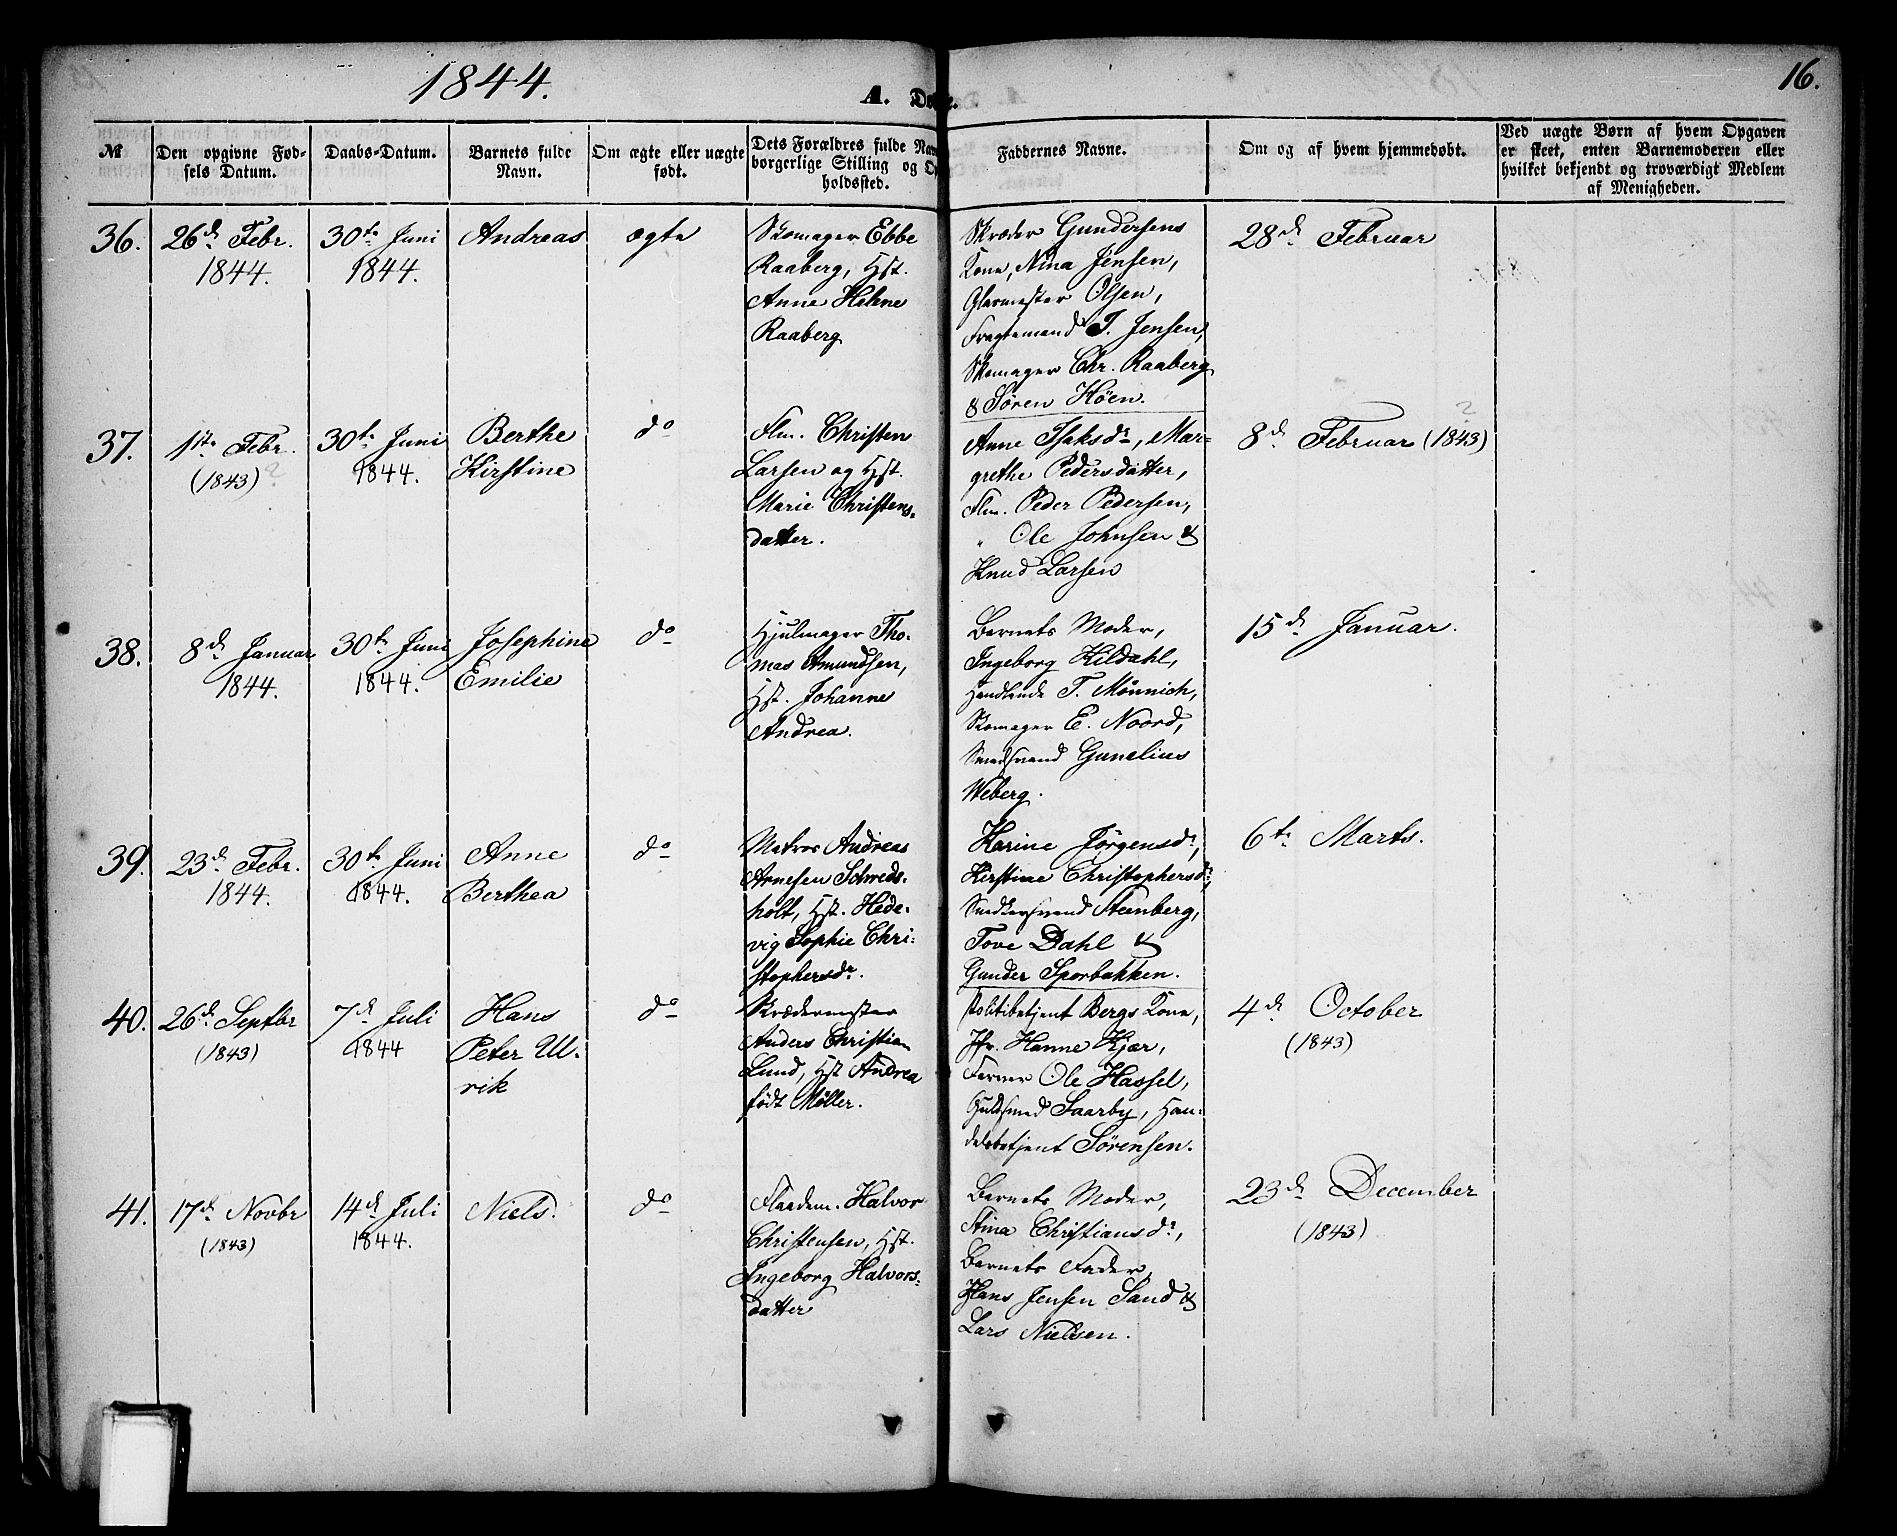 1844.
A. Døbte.
16.
№
Den opgivne Fød-
sels Datum.
Daabs-Datum.
Barnets fulde
Navn.
Om ægte eller uægte
født.
Dets Forældres fulde
borgerlige Stilling og
holdssted.
Faddernes Navne.
Om og af hvem hjemmedøbt.
Ved uægte Børn af hvem Opgaven
er skeet, enten Barnemoderen eller
hvilket bekjendt og troværdigt Medlem
af Menigheden.
36.
26d Febr.
1844.
30te Juni
1844.
Andreas
ægte
Skomager Ebbe
Raaberg, Hst.
Anne Helene
Raaberg
Skræder Gundersens
Kone, Nina Jensen,
Glarmester Olsen,
Fragtemand T. Jensen,
Skomager Chr. Raaberg
& Sören Höen.
28d Februar
37.
1ste Febr.
(1843) ?
30te Juni
1844.
Berthe
Kirstine
do
Flm. Christen
Larsen og Hst.
Marie Christens-
datter.
Anne Isaksdr, Mar-
grethe Pedersdatter,
Flm. Peder Pedersen,
" Ole Johnsen &
Knud Larsen
8d Februar (1843) ?
38.
8d Januar
1844.
30te Juni
1844.
Josephine
Emilie
do
Hjulmager Tho-
mas Amundsen,
Hst. Johanne
Andrea.
Barnets Moder,
Ingeborg Kildahl,
Handlende T. Mönnich,
Skomager E. Noord,
Smedsvend Gunelius
Weberg.
15d Januar.
39.
23d Febr.
1844.
30te Juni
1844.
Anne
Berthea
do
Matros Andreas
Arnesen Schweds-
holt, Hst. Hede-
vig Sophie Chri-
stophersdr.
Karine Jörgensdr,
Kirstine Christophersdr,
Snedkersvend Steenberg,
Tove Dahl &
Gunder Sporbakken.
6te Marts.
40.
26d Septbr
(1843)
7d Juli
1844
Hans
Peter Ul-
rik
do
Skrædermester
Anders Christian
Lund, Hst Andrea
födt Möller.
Politibetjent Bergs Kone,
Jfr. Hanne Kjær,
Farver Ole Hassel,
Guldsmed Saarby, Han-
delsbetjent Sörensen.
4d October
(1843)
41.
17d Novbr
(1843)
14d Juli
1844.
Niels.
do
Flaadem. Halvor
Christensen, Hst.
Ingeborg Halvors-
datter
Barnets Moder,
Stina Christiansdr,
Barnets Fader,
Hans Jensen Sand &
Lars Nielsen.
23d December
(1843)